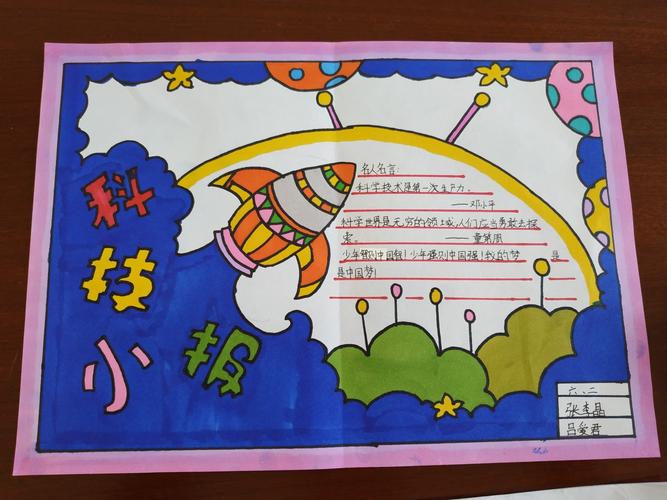 科
技
小
报
名人名言:
科学技术是第一次生产力。
——邓小平
科学世界是无穷的领域,人们应当勇敢去探
索。 ——童第周
少年强则中国强!少年强则中国强!我的梦 是
是中国梦!
六、二
张李晶
吕爱君